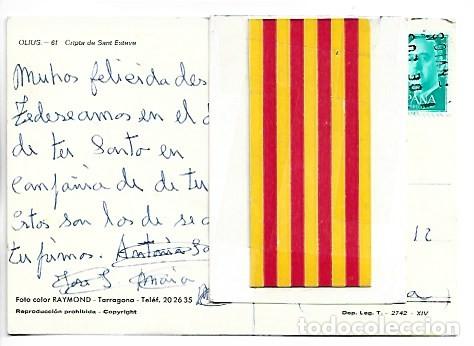 OLIUS. - 61 Cripta de Sant Esteve
Muhos felicidades
Tedeseamos en el d
de ter Santo en
Campañia de de ter
Estos son los de se
ter firmos. Antonia
Jose
Foto color RAYMOND - Tarragona - Teléf. 20 26 35
Reproducción prohibida - Copyright
ESPAÑA
12
Dep. Leg. T. - 2742 - XIV
todocoleccion